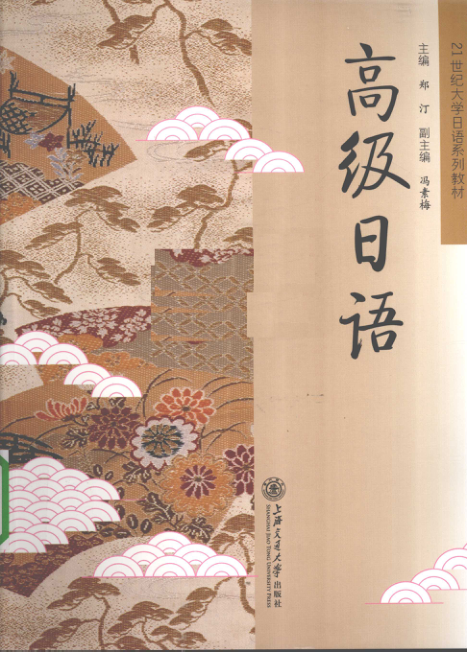 21世纪大学日语系列教材
主编 郑汀 副主编 冯素梅
高级日语
上海交通大学出版社
SHANGHAI JIAO TONG UNIVERSITY PRESS